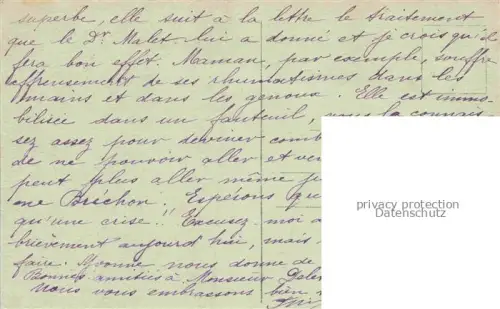 superbe, elle suit à la lettre le traitement
que le Dr Malet lui a donné et je crois qu'il
fera bon effet. Maman, par exemple, souffre
affreusement de ses rhumatismes dans les
mains et dans les genoux. Elle est immo-
bilisée dans un fauteuil, vous la connais
sez assez pour deviner comb
de ne pouvoir aller et ve
peut plus aller même
me Bréchon. Espérons qu
qu'une crise!! Excusez-moi
brièvement aujourd'hui, mais
faire. Yvonne nous donne de
Bonnes amitiés à Monsieur
Nous vous embrassons bien
privacy protection
Datenschutz